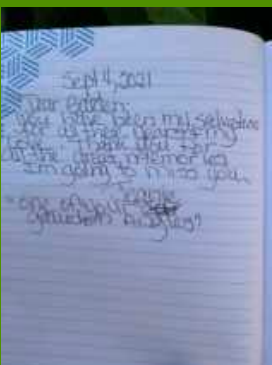 Sept 4, 2021
Dear Garden:
You have been my salvation
for all these years my
love. Thank you for
all the great memories
I'm going to miss you.
one of your
guardians